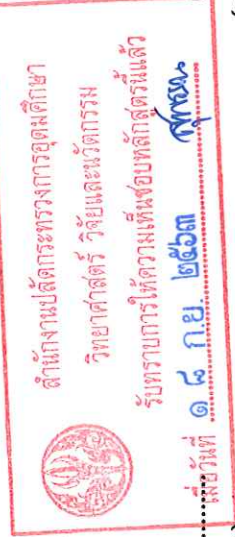 สำนักงานปลัดกระทรวงการอุดมศึกษา
วิทยาศาสตร์ วิจัยและนวัตกรรม
รับทราบการให้ความเห็นชอบหลักสูตรนี้แล้ว
เมื่อวันที่ ๑ ๘ ก.ย. ๒๕๖๓